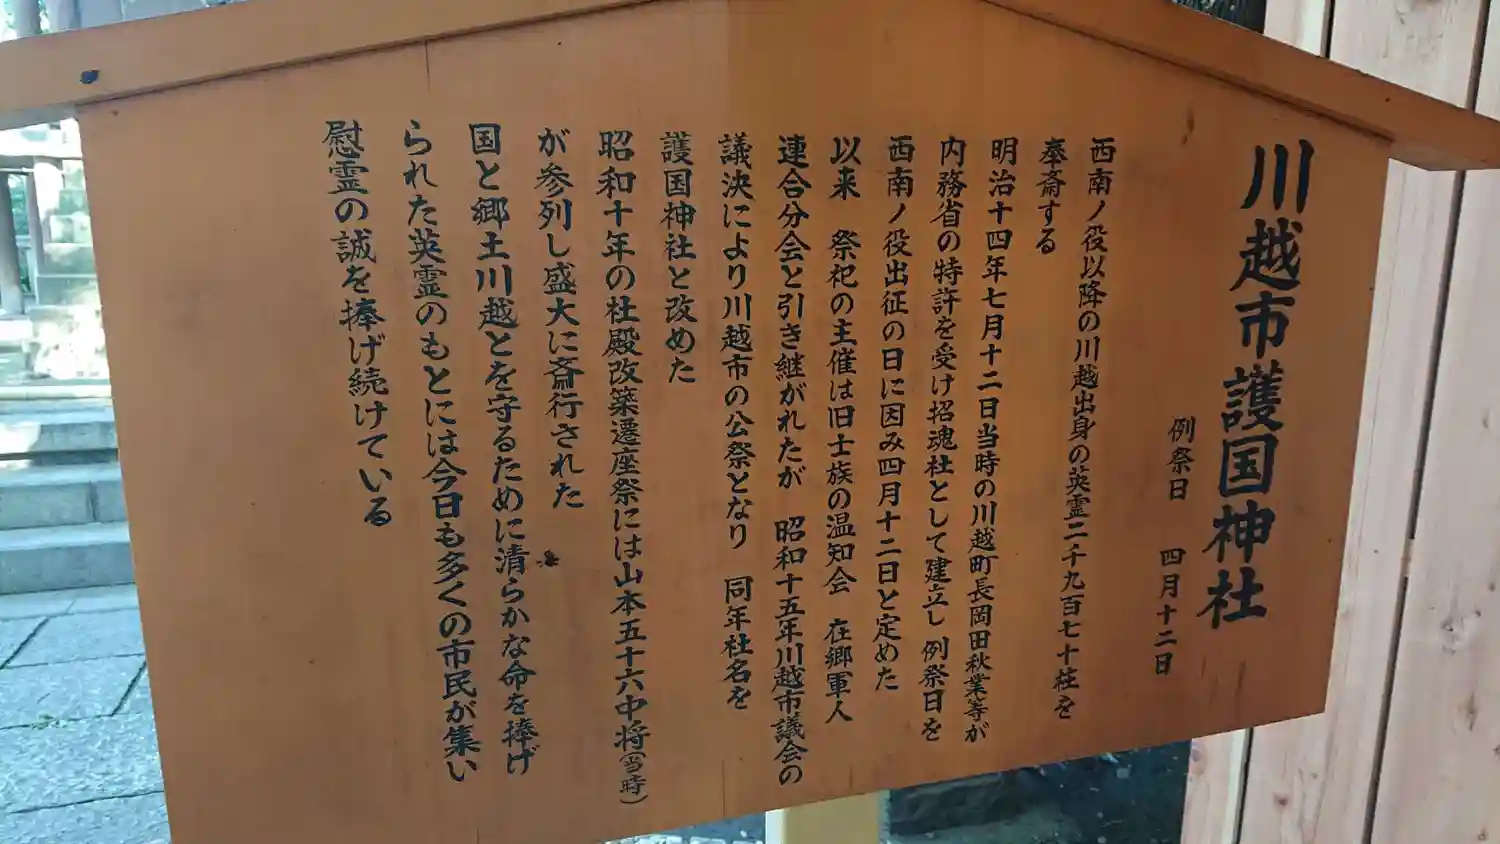 川越市護国神社
例祭日　四月十二日
西南ノ役以降の川越出身の英霊二千九百七十柱を
奉斎する
明治十四年七月十二日当時の川越町長岡田秋業等が
内務省の特許を受け招魂社として建立し例祭日を
西南ノ役出征の日に因み四月十二日と定めた
以来　祭祀の主催は旧士族の温知会　在郷軍人
連合分会と引き継がれたが　昭和十五年川越市議会の
議決により川越市の公祭となり　同年社名を
護国神社と改めた
昭和十年の社殿改築遷座祭には山本五十六中将（当時）
が参列し盛大に斎行された
国と郷土川越とを守るために清らかな命を捧げ
られた英霊のもとには今日も多くの市民が集い
慰霊の誠を捧げ続けている